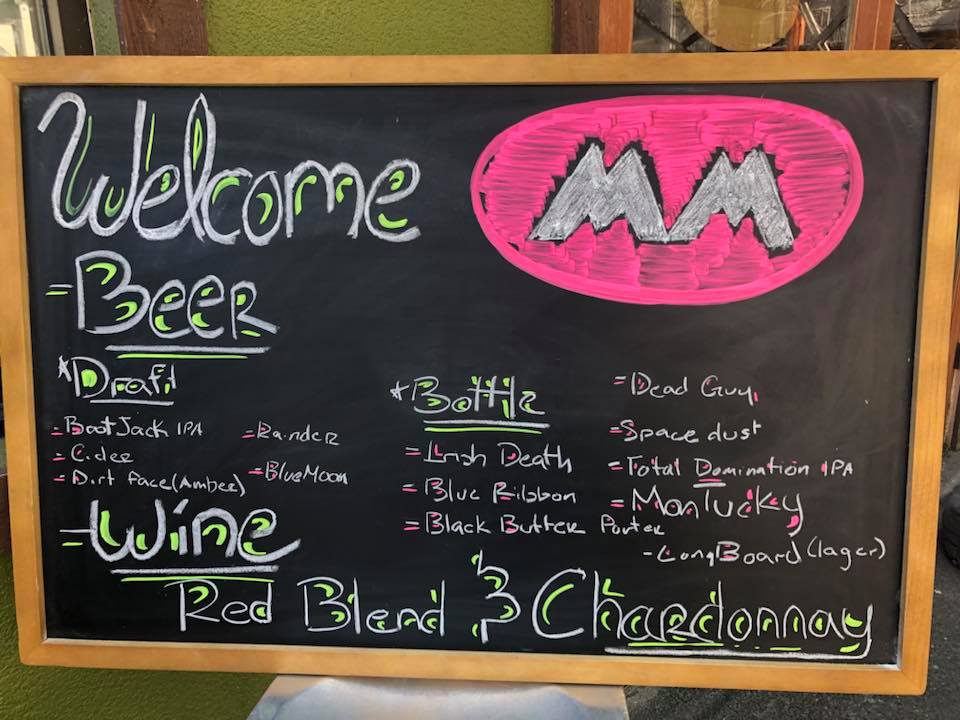 Welcome
MM
= Beer
* Draft
= Boot Jack IPA
= Cider
= Dirt face (Amber)
= Rainder
= Blue Moon
* Bottle
= Irish Death
= Blue Ribbon
= Black Butter Porter
= Dead Guy
= Space dust
= Total Domination IPA
= Manlucky
- Long Board (lager)
= Wine
Red Blend & Chardonnay